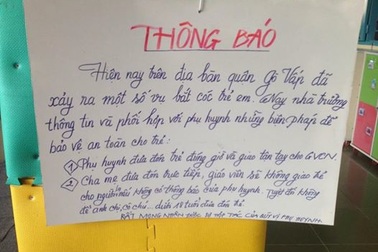 THÔNG BÁO
Hiện nay trên địa bàn quận Gò Vấp đã
xảy ra một số vụ bắt cóc trẻ em. Nay nhà trường
thông tin và phối hợp với phụ huynh những biện pháp để
bảo vệ an toàn cho trẻ:
1 Phụ huynh đưa đón trẻ đúng giờ và giao tận tay cho GVCN.
2 Cha mẹ đón trực tiếp, giáo viên sẽ không giao trẻ
cho người nếu không có thông báo của phụ huynh. Tuyệt đối không
để anh chị dưới 18 tuổi đưa đón trẻ
RẤT MONG NHẬN ĐƯỢC SỰ HỢP TÁC CỦA QUÝ VỊ PHỤ HUYNH